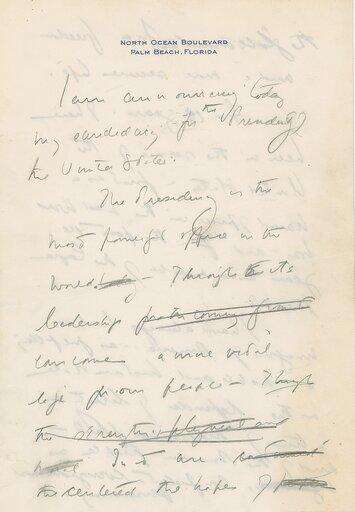 NORTH OCEAN BOULEVARD
PALM BEACH, FLORIDA
I am announcing today
my candidacy for the Presidency
the United States.
The Presidency is the
most powerful office in the
world – Through its
leadership
can come a more vital
life for our people – Through
the
In it are
the centered the hopes of